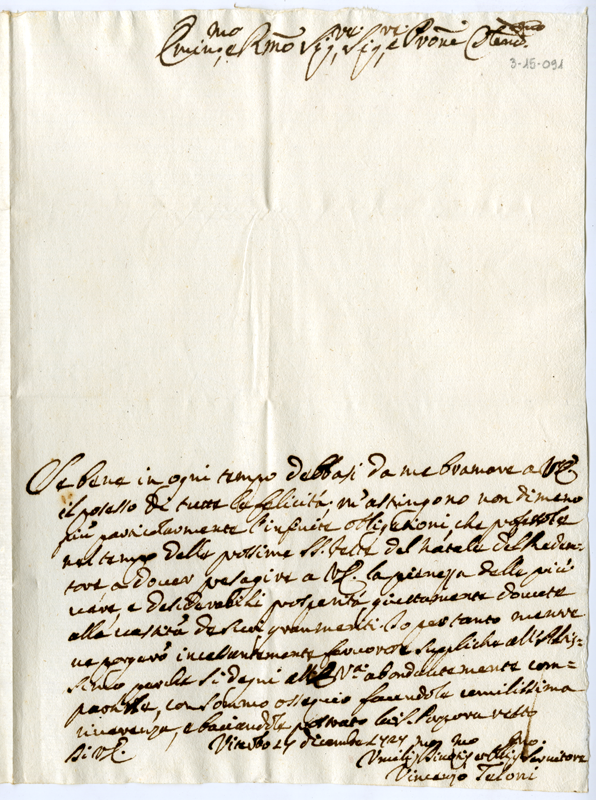 Emin.mo e R.mo Sig.re, Sig.re e P.rone Colend.mo
3-15-091
Se bene in ogni tempo debbasi da me bramare a V.E.
il possesso di tutte le felicità, m'astringono non dimeno
più particolarmente l'infinite obligationi, che professole
nel tempo delle prossime SS. Feste del Natale del Reden=
tore, a dover presagire a V.E. la pienezza delle più
care, e desiderabili prosperità giustamente dovute
alla vastità de suoi gran meriti. Io per tanto mentre
ne porgerò incessantemente fervorose suppliche all'Altis=
simo perche si degni all'E. V.ra abondantemente com=
partirle, con sommo ossequio facendole umilissima
riverenza, e baciandole prostrato la S. Porpora resto
Di V.E.
Viterbo 27 dicembre 1727
Umilis.mo Divotis.mo et Oblig.mo Servitore
Vincenzo Teloni